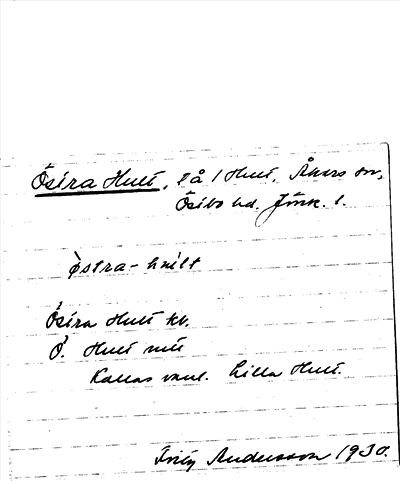 Östra Hult, på / Hult, Åkers sn,
Östbo hd. Jönk. l.
östra-hult
Östra Hult kv.
Ö. Hult
Kallas vanl. Lilla Hult.
Fritz Andersson 1930.